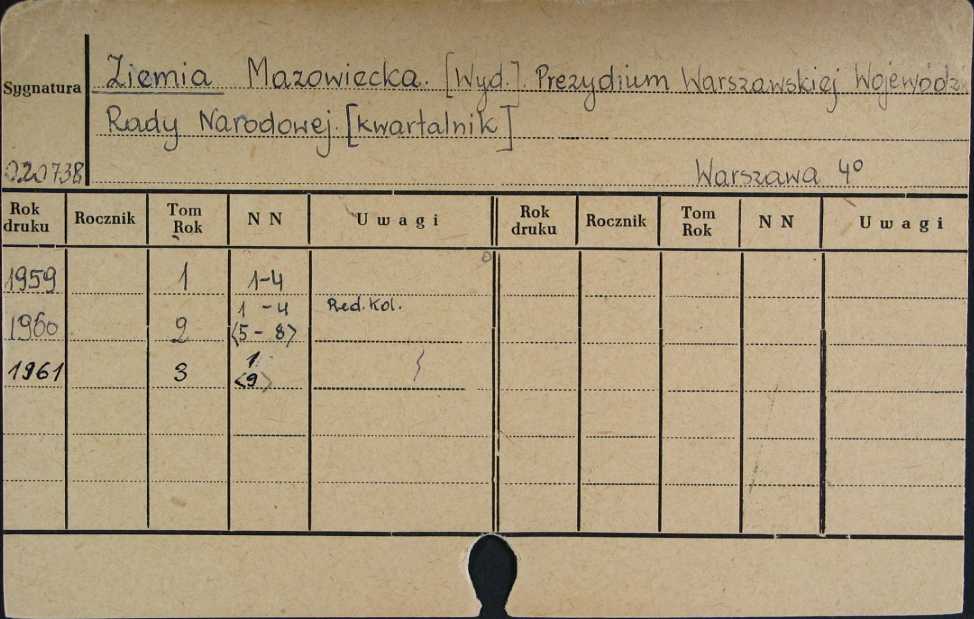 Sygnatura
Ziemia Mazowiecka. [Wyd.] Prezydium Warszawskiej Wojewódz.
Rady Narodowej. [kwartalnik]
020738
Warszawa 4°
Rok druku Rocznik Tom Rok N N Uwagi Rok druku Rocznik Tom Rok N N Uwagi
1959 1 1-4
1960 2 1-4 <5-8> Red. Kol.
1961 3 1 <9>